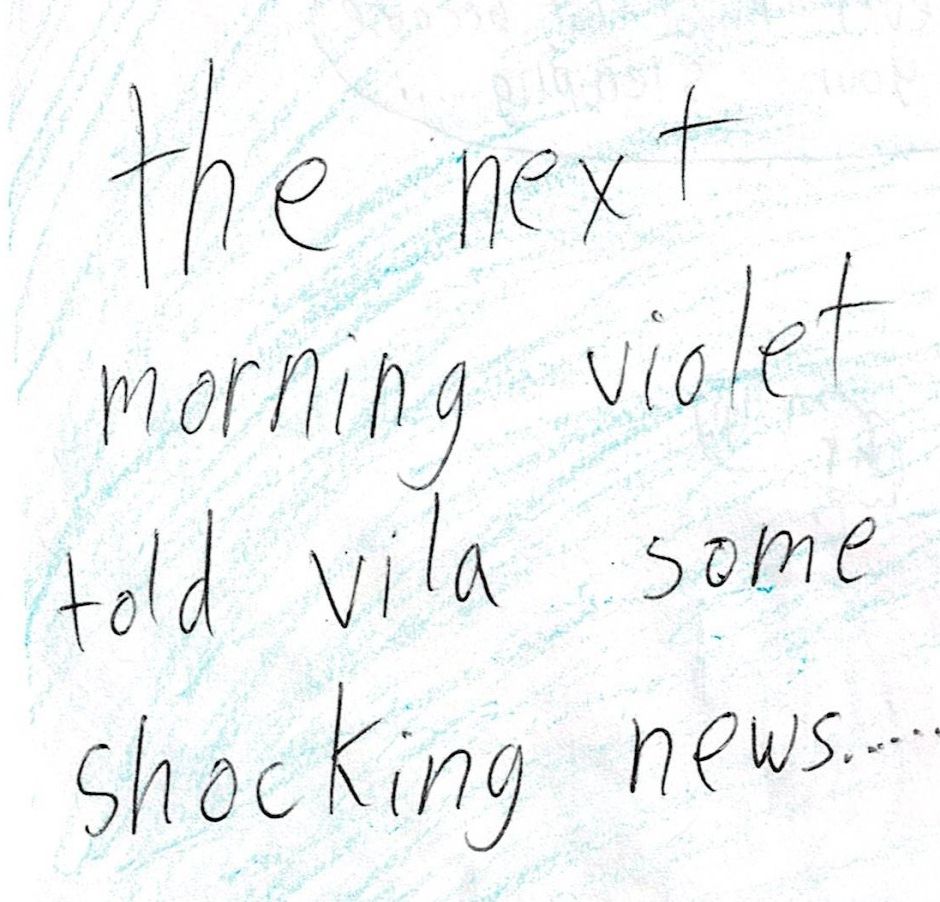 the next
morning violet
told vila some
shocking news......